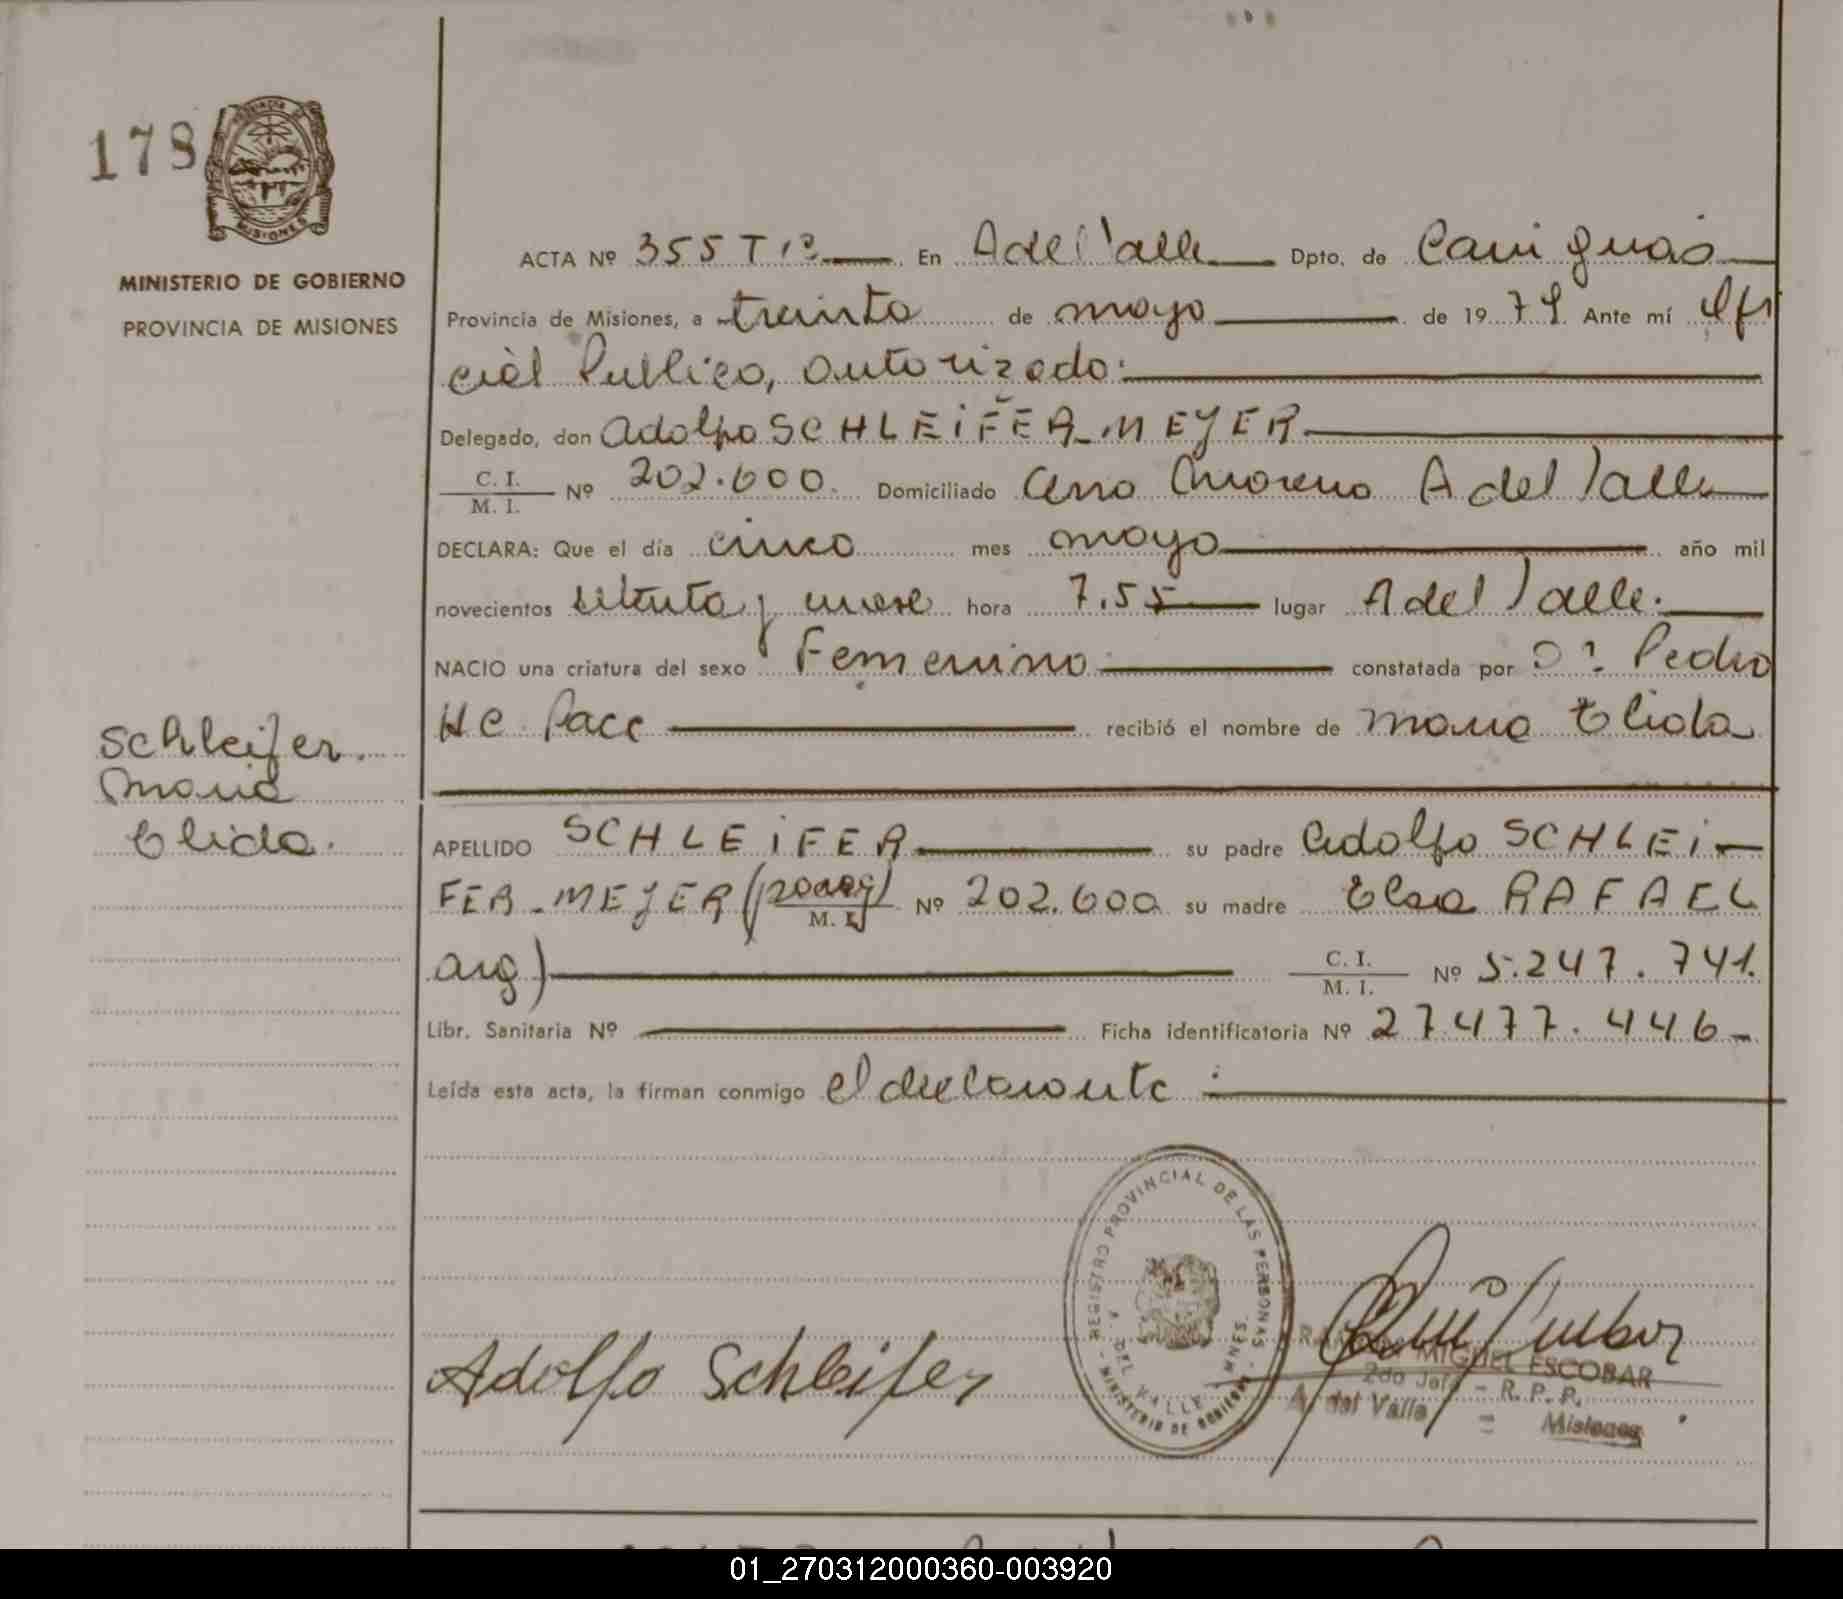 178
MISIONES
MINISTERIO DE GOBIERNO
PROVINCIA DE MISIONES
ACTA Nº 355 T 1º En A del Valle Dpto. de Cainguás
Provincia de Misiones, a treinta de mayo de 1979 Ante mí Ofi
cial Publico, autorizado:
Delegado, don Adolfo SCHLEIFER-MEYER
C. I.
M. I. Nº 202.600. Domiciliado Cerro Moreno A del Valle
DECLARA: Que el día cinco mes mayo año mil
novecientos setenta y nueve hora 7.55 lugar A del Valle.
NACIO una criatura del sexo Femenino constatada por Dr. Pedro
HC. Pace recibió el nombre de Maria Elida
Schleifer.
Maria
Elida.
APELLIDO SCHLEIFER su padre Adolfo SCHLEI-
FER-MEYER M. I. Nº 202.600 su madre Elsa RAFAEL
arg) C. I.
M. I. Nº 5.247.741.
Libr. Sanitaria Nº Ficha identificatoria Nº 27.477.446-
Leída esta acta, la firman conmigo el declarante :
REGISTRO PROVINCIAL DE LAS PERSONAS
A. DEL VALLE MNES.
MINISTERIO DE GOBIERNO
Adolfo Schleifer
MIGUEL ESCOBAR
2do Jefe - R. P. P.
A. del Valle = Misiones
01_270312000360-003920